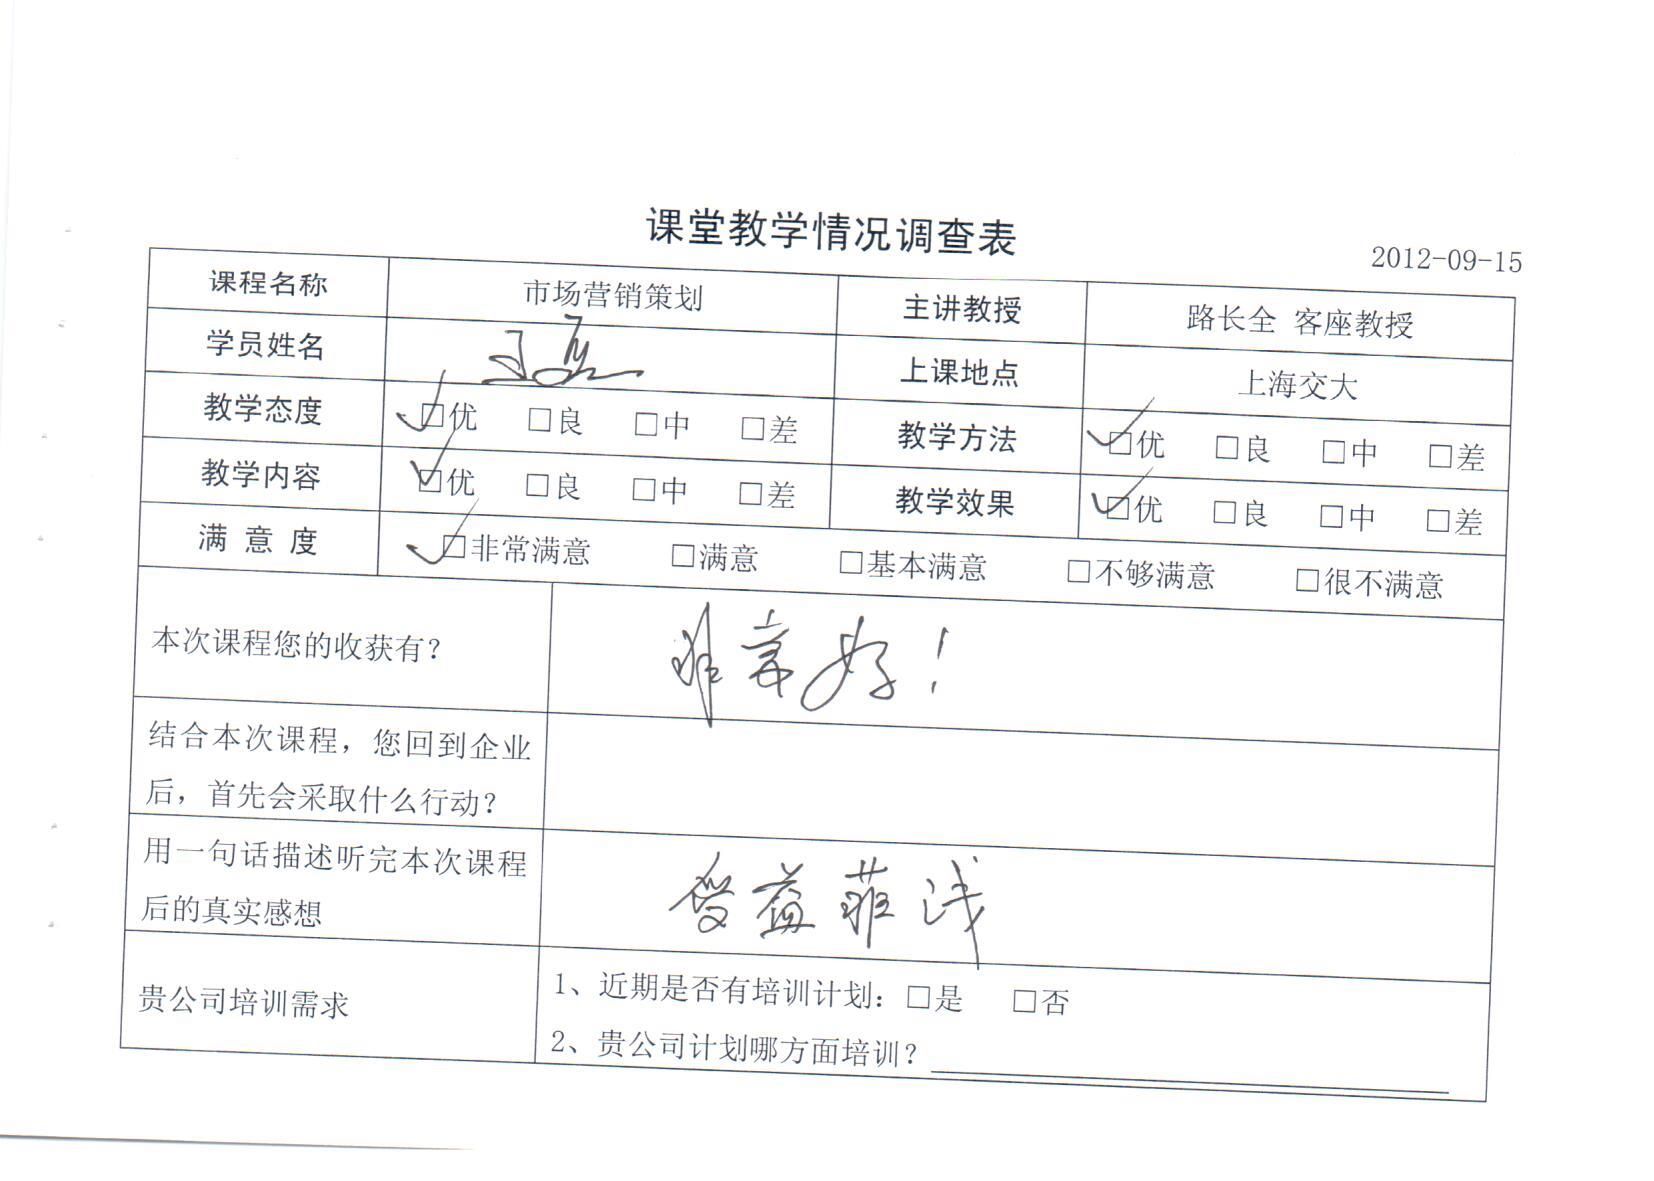 课堂教学情况调查表
2012-09-15
课程名称 市场营销策划 主讲教授 路长全 客座教授
学员姓名 上课地点 上海交大
教学态度 ☑优 □良 □中 □差 教学方法 ☑优 □良 □中 □差
教学内容 ☑优 □良 □中 □差 教学效果 ☑优 □良 □中 □差
满意度 ☑非常满意 □满意 □基本满意 □不够满意 □很不满意
本次课程您的收获有？ 非常好！
结合本次课程，您回到企业
后，首先会采取什么行动？
用一句话描述听完本次课程
后的真实感想
受益菲浅
贵公司培训需求
1、近期是否有培训计划：□是 □否
2、贵公司计划哪方面培训？